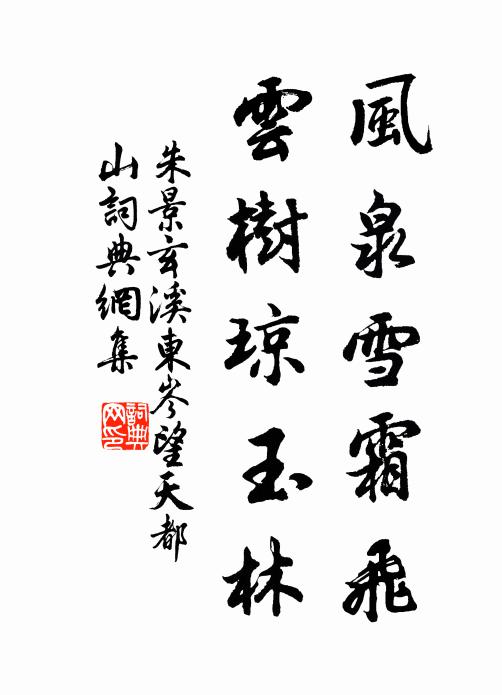 風泉雪霜飛
雲樹琼玉林
朱景玄溪東岑望天都
山詞典網集
詞典
网印